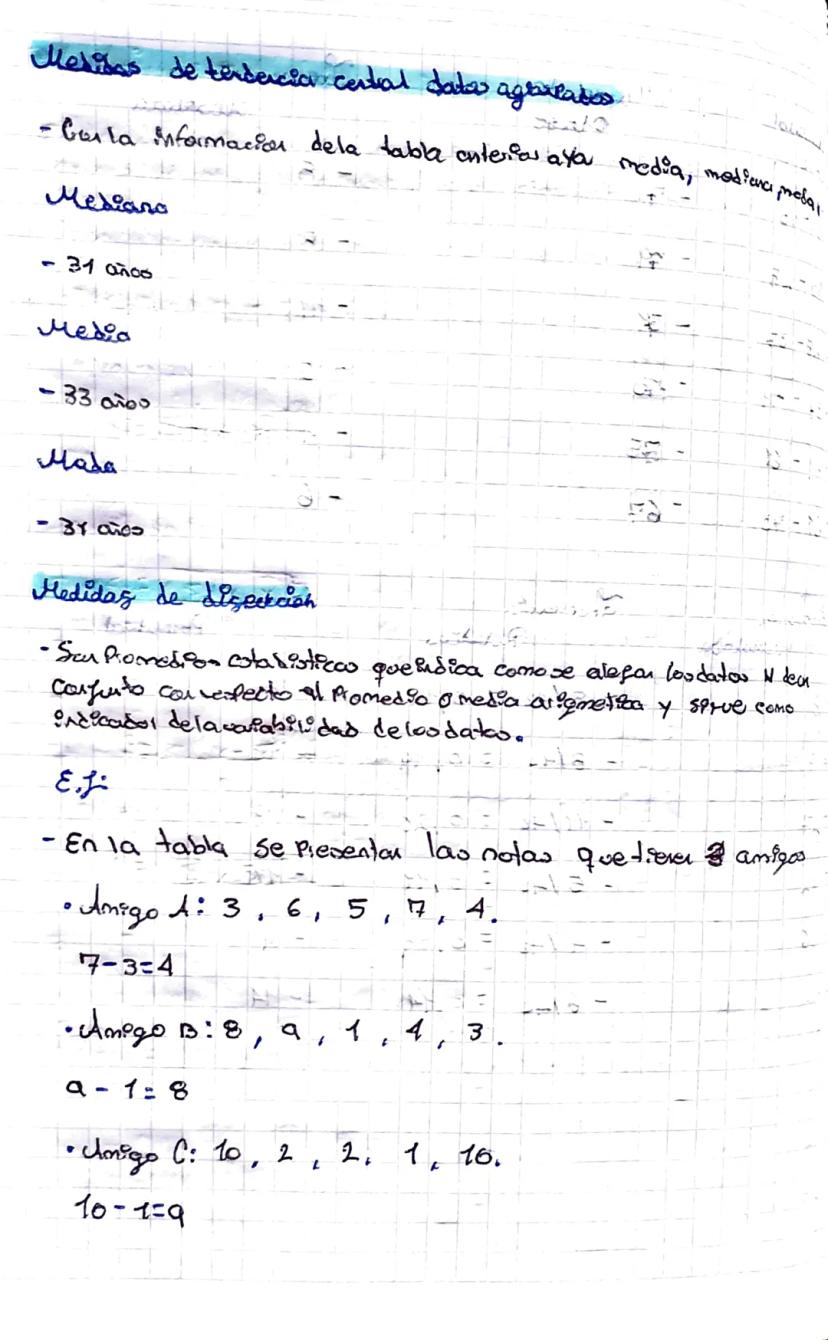 Medidas de tendencia central datos agrupados
- Con la informacion dela tabla anterior aya media, mediana, moda,
Mediana
- 31 años
Media
- 33 años
Moda
- 31 años
Medidas de
- Son Promedios estadisticos que indica como se alejan los datos
Conjunto con respecto al Promedio o media arigmetica y sirve como
indicador dela variabilidad de los datos.
E.J:
- En la tabla se Presentan las notas que tienen 3 amigos
• Amigo A: 3, 6, 5, 7, 4.
7-3=4
• Amigo B: 8, 9, 1, 4, 3.
9 - 1= 8
• Amigo C: 10, 2, 2, 1, 10.
10-1=9